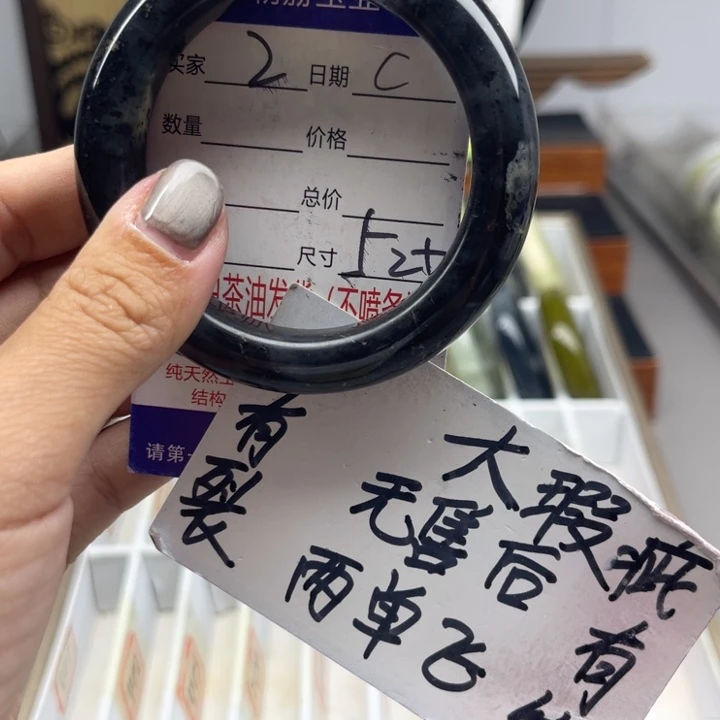 买家 2 日期 C
数量 价格
总价
尺寸 52+
茶油发 (不喷
纯天然
结构
请第一
有裂
大瑕疵
无售后 有
两单飞